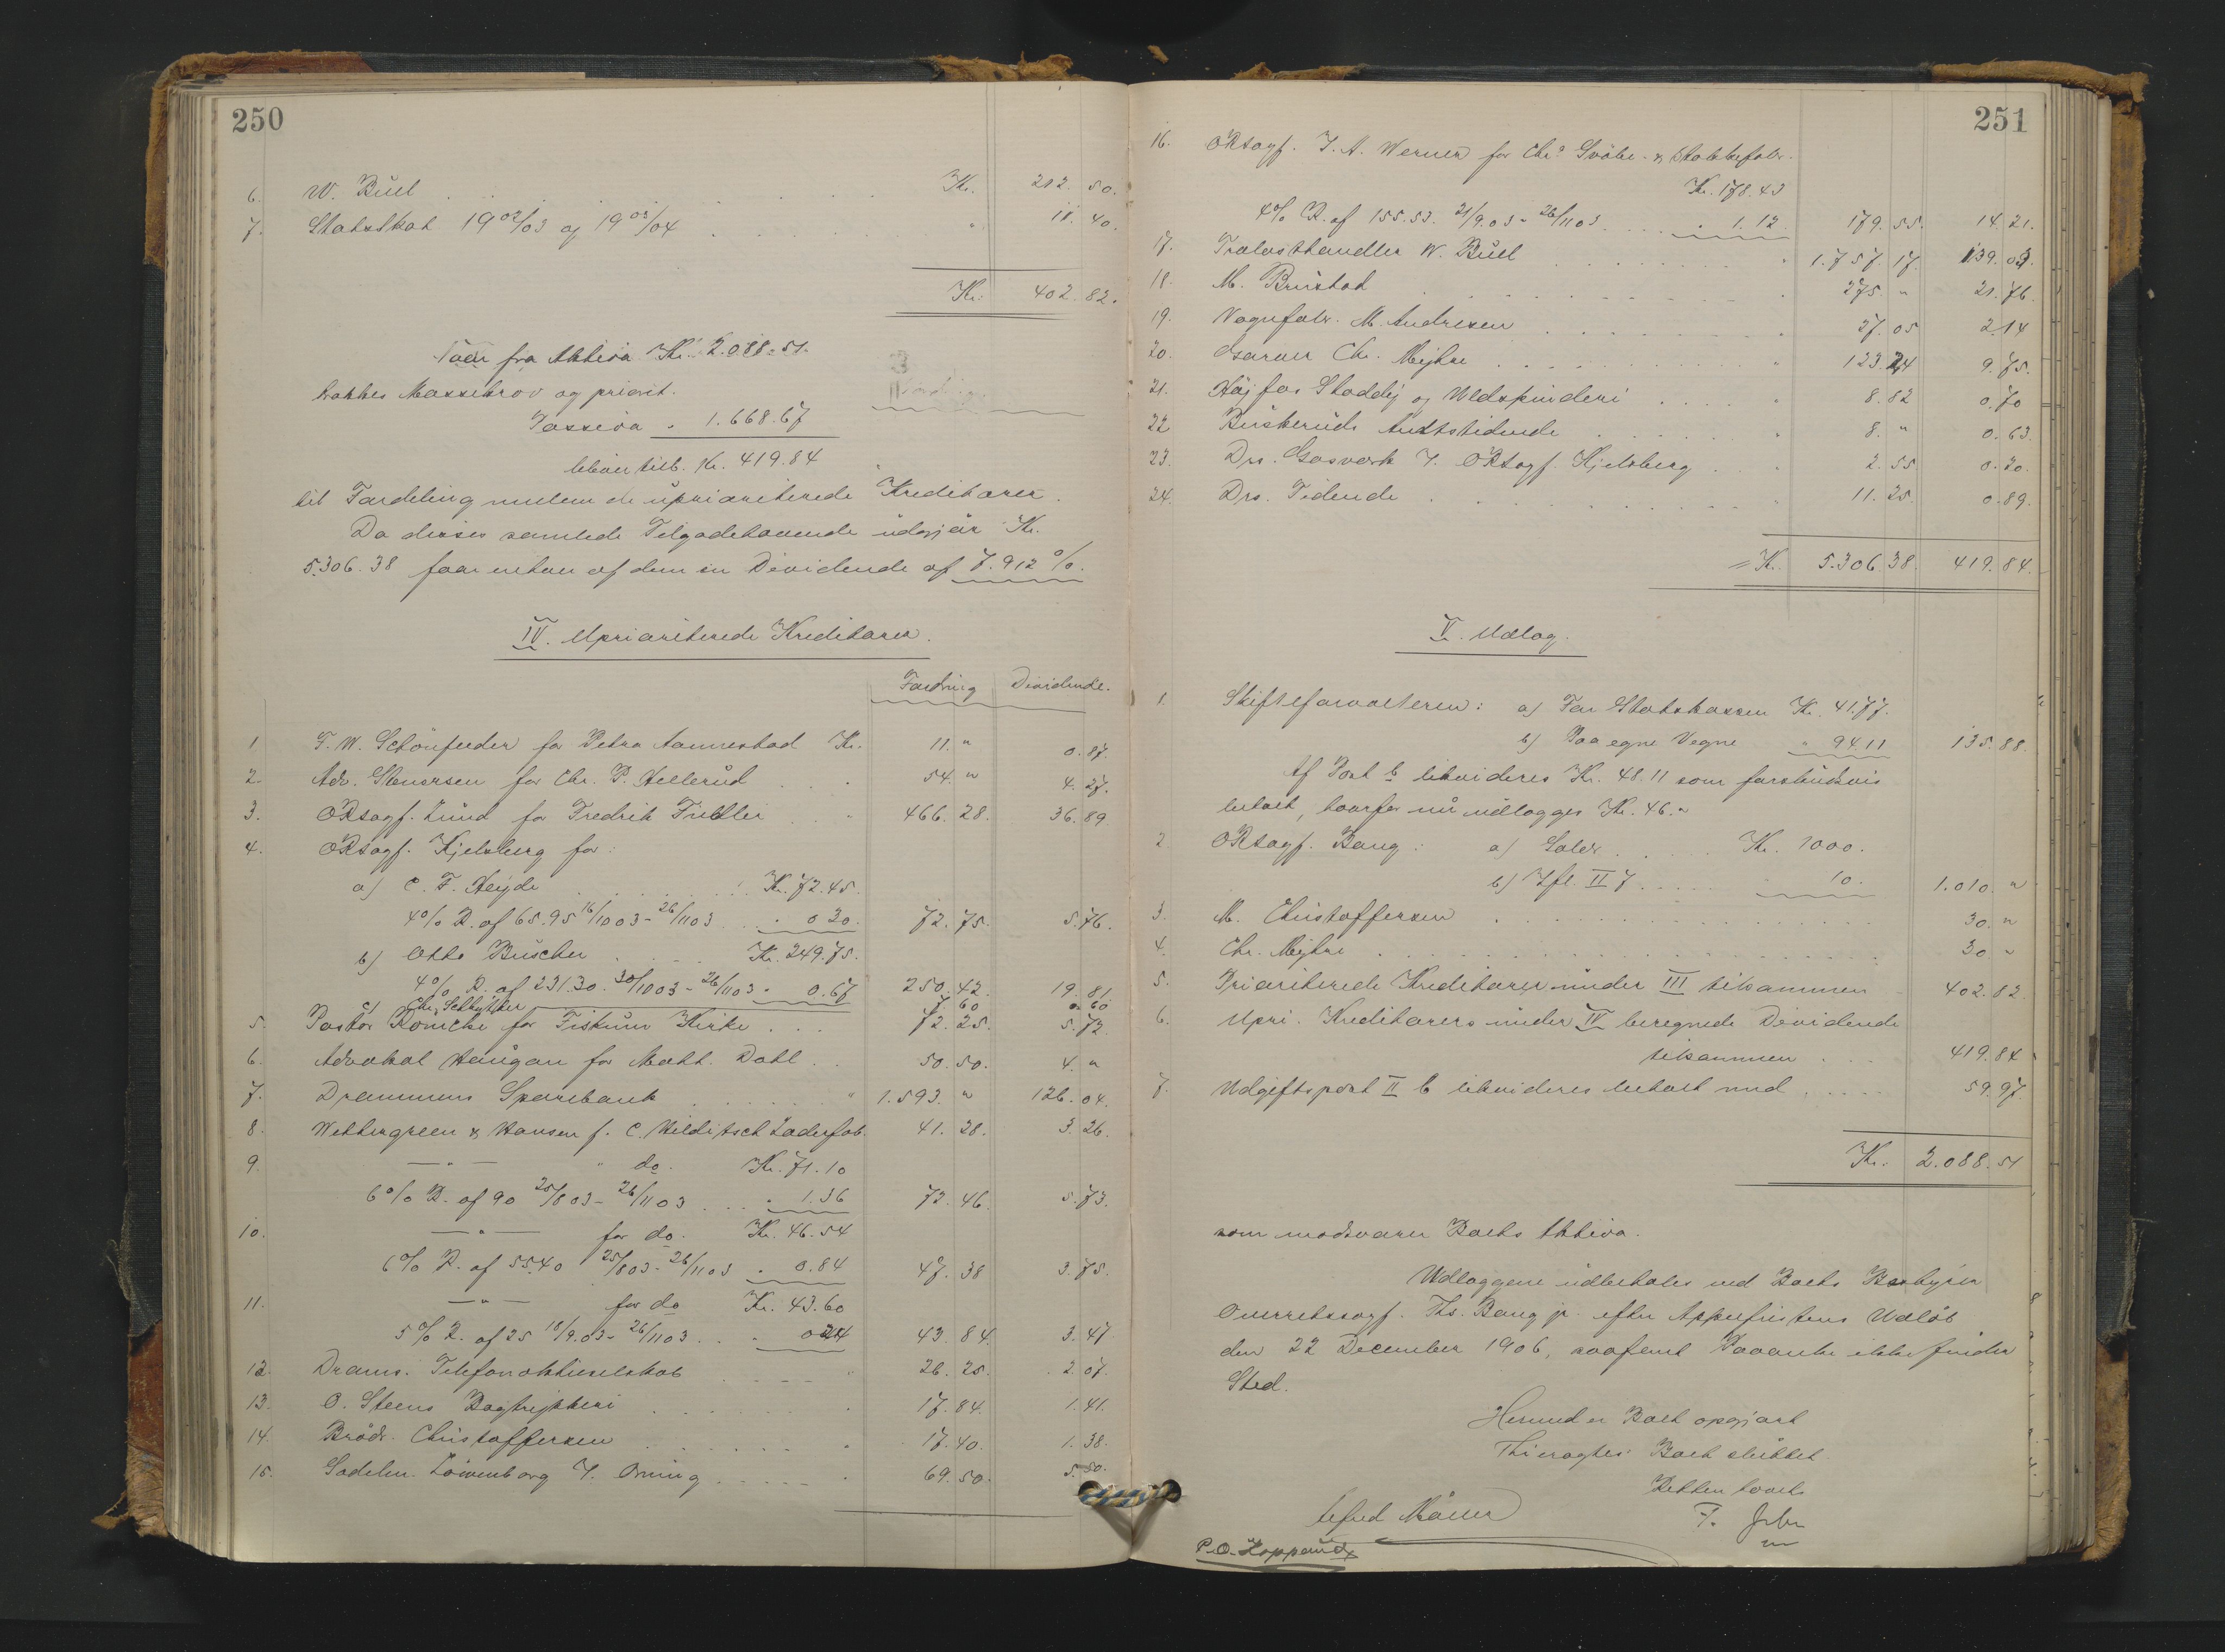 250
6. W. Buel . . . Kr. 212. 50.
7. Statsskat 19 02/03 og 19 03/04 . . . " 11. 40.
Kr. 402. 82.
Naar fra Aktiva Kr. 2.088.51.
trækkes Massekrav og priorit.
Passiva " 1.668.67
bliver tilb. Kr. 419.84
til Fordeling mellem de upriariterede Kreditorer.
Da disses samlede Tilgodehavende udgjør Kr.
5.306.38 faar enhver af dem en Dividende af 7.912 %.
IV. Upriariterede Kreditorer.
Fordring Dividende.
1 T. W. Schönfeder for Petra Aannestad Kr. 11. " 0.87.
2. Adv. Stenersen for Chr. P. Hellerud . . 54. " 4.27.
3. ORsagf. Lund for Fredrik Fiedler . . " 466.28. 36.89
4. ORsagf. Kjelsberg for:
a) C. F. Heyde . . . Kr. 72.45.
4% R. af 65.95 16/10 03 - 26/11 03 . . " 0.30. 72.75. 5.76.
b) Otto Büscher . . . Kr. 249.75.
4% R. af 231.30. 30/10 03 - 26/11 03 " 0.67 250.42. 19.81
c) Chr. 7.60 0.60
5. Pastor for Fiskum Kirke . . . 72.25. 5.72.
6. Advokat Haugan for Math. Dahl . . 50.50. 4. "
7. Drammens Sparebank . . . " 1.593. " 126.04.
8. Wettergreen & Hansen f. C. Hilditsch Læderfab. 41.28. 3.26.
9. — " — " do. Kr. 71.10
6% R. af 90 25/8 03 - 26/11 03 . . . " 1.36 72.46. 5.73.
10. — " — for do. Kr. 46.54
6% R. af 55.40 25/8 03 - 26/11 03 " 0.84 47.38 3.75.
11. — " — for do Kr. 43.60
5% R. af 25 18/9.03 - 26/11 03 . . " 0.24 43.84. 3.47
12. Drams. Telefonaktieselskab . . . " 26.25. 2.07.
13. O. Steens Bogtrykkeri . . . " 17.84. 1.41.
14. Brödr. Christoffersen . . . " 17.40. 1.38.
15. Sadelm. Löwenborg . . . " 69.50. 5.50.
251
16. ORsagf. J. A. Werner for Chra. & Stokkefabr.
Kr. 178.43
4% R. af 155.53. 21/9.03 - 26/11 03 . . . " 1.12. 179.55. 14.21.
17. Trælasthandler W. Buel . . . " 1.757.17. 139.03.
18. M. Brustad . . . 275. " 21.76.
19. Vognfabr. M. Andresen . . . 27.05 2.14
20. Garver Chr. Myhre . . . " 123.24 9.75.
21. Shoddy og Uldspinderi . . . " 8.82 0.70
22 Buskeruds Amtstidende . . . " 8. " 0.63.
23. Drs. Gasværk v. ORsagf. Kjelsberg . . . 2.55 0.20.
24. Drs. Tidende . . . " 11.25. 0.89.
= Kr. 5.306.38. 419.84.
V. Udlæg.
1. Skifteforvalteren: a) For Statskassen Kr. 41.77.
b) Paa egne Vegne " 94.11 135.88.
Af Post b likvideres Kr. 48.11 som forskudsvis
betalt, hvorfor nu udlægges Kr. 46. "
2. ORsagf. Bang: a) Salær . . . Kr. 1000.
b) Ifl. II 7 . . . 10. 1.010. "
3. M. Christoffersen . . . 30. "
4. Chr. Myhre . . . 30. "
5. Priariterede Kreditorer under III tilsammen 402.82
6. Upri. Kreditorers under IV beregnede Dividende
tilsammen . . . 419.84
7. Udgiftspost II 6 likvideres betalt med . . . 59.97
Kr. 2.088.51
som modsvarer Boets Aktiva.
Udlæggene udbetales ved Boets Bestyrer
Overretssagf. Ths. Bang jr. efter Appelfristens Udløb
den 22 December 1906, saafremt Paaanke ikke finder
Sted.
Hermed er Boet opgjort
Thi eragtes: Boet sluttet.
Retten hævet